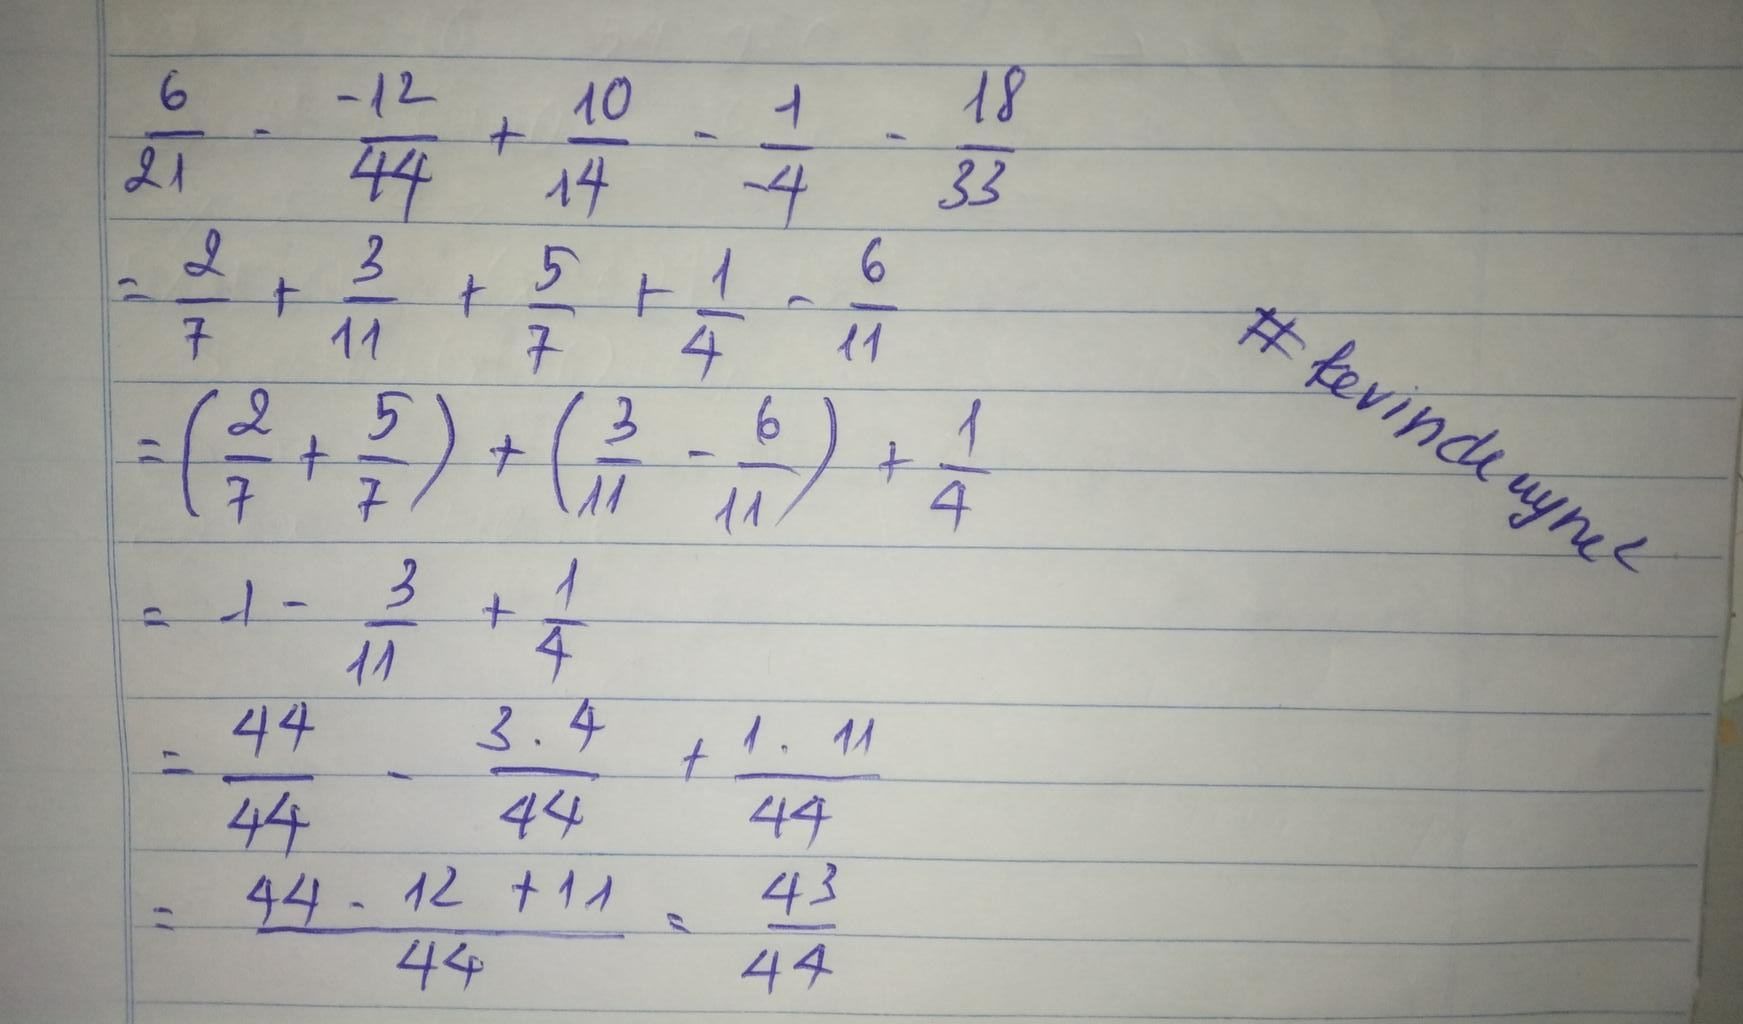 6/21 - -12/44 + 10/14 - 1/-4 - 18/33
= 2/7 + 3/11 + 5/7 + 1/4 - 6/11
= (2/7 + 5/7) + (3/11 - 6/11) + 1/4
= 1 - 3/11 + 1/4
= 44/44 - 3.4/44 + 1.11/44
= 44 - 12 + 11/44 = 43/44